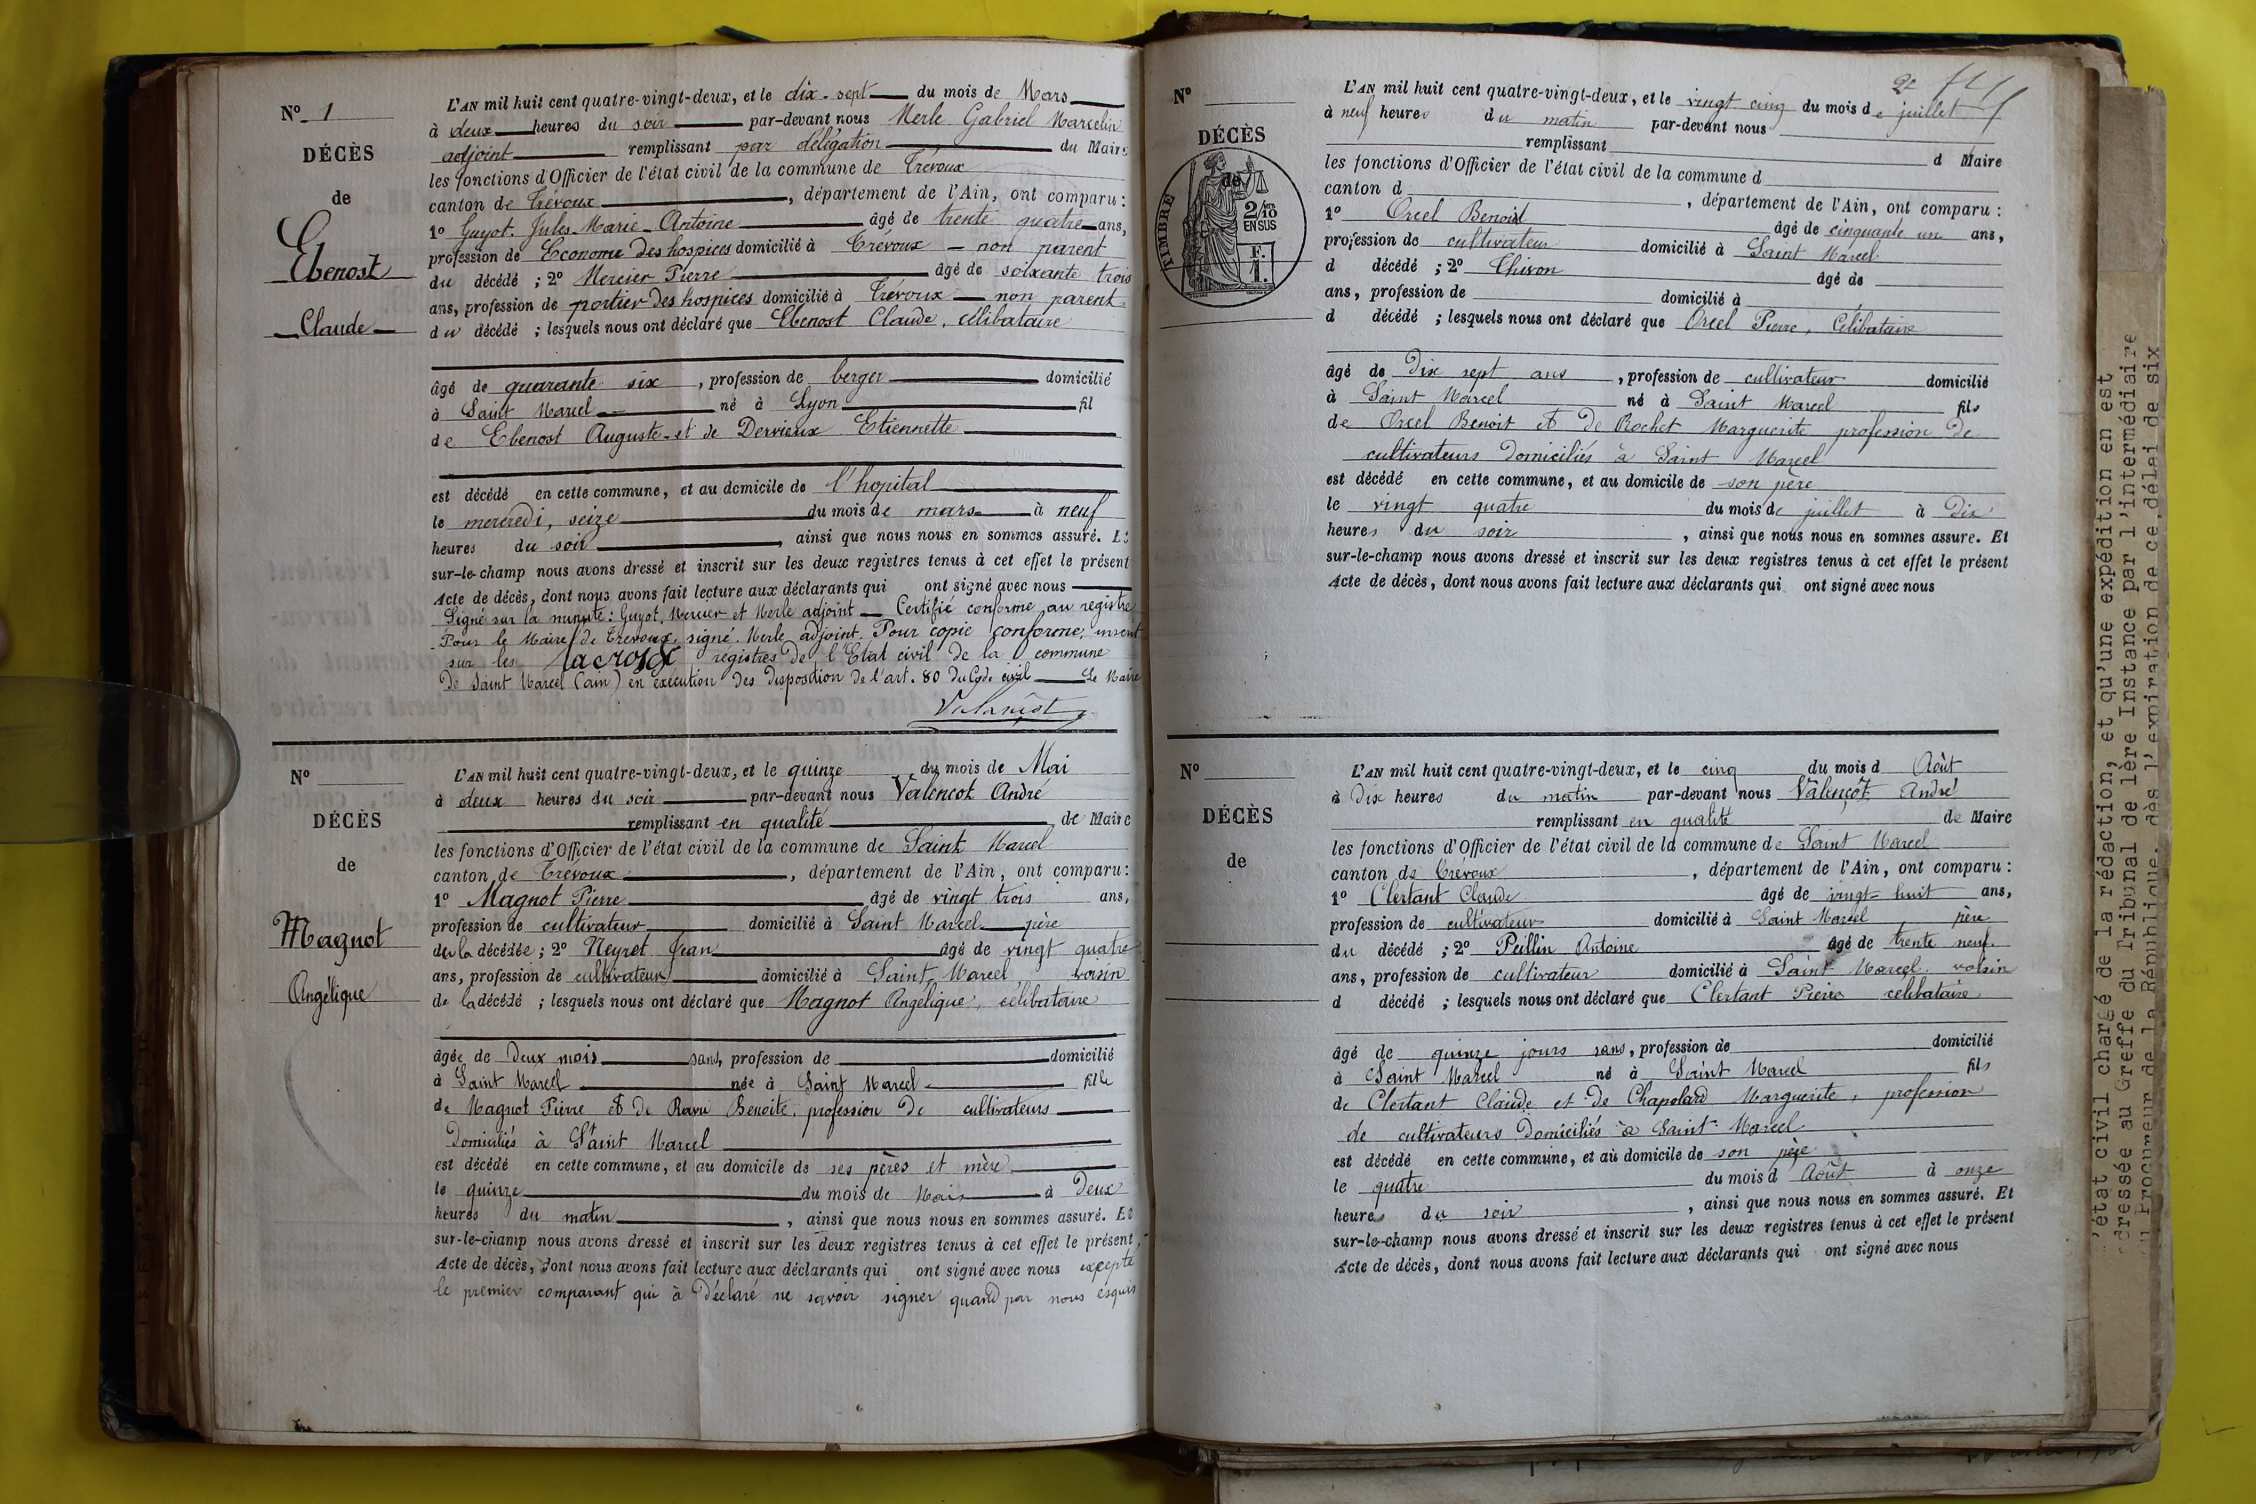 No 1
DÉCÈS
de
Ebenost
Claude
L'AN mil huit cent quatre-vingt-deux, et le dix-sept du mois de Mars
à deux heures du soir par-devant nous Merle Gabriel Marcelin
adjoint remplissant par délégation du Maire
les fonctions d'Officier de l'état civil de la commune de Trévoux
canton de Trévoux, département de l'Ain, ont comparu :
1º Guyot Jules-Marie-Antoine âgé de trente quatre ans,
profession de Econome des hospices domicilié à Trévoux non parent
du décédé ; 2º Mercier Pierre âgé de soixante trois
ans, profession de portier des hospices domicilié à Trévoux non parent
du décédé ; lesquels nous ont déclaré que Ebenost Claude, célibataire
âgé de quarante six, profession de berger domicilié
à Saint Marcel né à Lyon fil
de Ebenost Auguste et de Dervieux Etiennette
est décédé en cette commune, et au domicile de l'hopital
le mercredi, seize du mois de mars à neuf
heures du soir, ainsi que nous nous en sommes assuré. Et
sur-le-champ nous avons dressé et inscrit sur les deux registres tenus à cet effet le présent
Acte de décès, dont nous avons fait lecture aux déclarants qui ont signé avec nous
Signé sur la minute : Guyot, Mercier et Merle adjoint Certifié conforme au registre
Pour le Maire de Trévoux, signé Merle adjoint. Pour copie conforme, inscrit
sur les registres de l'Etat civil de la commune
de Saint Marcel (ain) en exécution des disposition de l'art. 80 du Code civil Le Maire
Valençot
No
DÉCÈS
de
Magnot
Angélique
L'AN mil huit cent quatre-vingt-deux, et le quinze du mois de Mai
à deux heures du soir par-devant nous Valençot André
remplissant en qualité de Maire
les fonctions d'Officier de l'état civil de la commune de Saint Marcel
canton de Trévoux, département de l'Ain, ont comparu :
1º Magnot Pierre âgé de vingt trois ans,
profession de cultivateur domicilié à Saint Marcel père
de la décédée ; 2º Neyret Jean âgé de vingt quatre
ans, profession de cultivateur domicilié à Saint Marcel voisin
de la décédé ; lesquels nous ont déclaré que Magnot Angélique, célibataire
âgée de Deux mois sans, profession de domicilié
à Saint Marcel née à Saint Marcel fille
de Magnot Pierre et de Ravu Benoite, profession de cultivateurs
Domiciliés à Saint Marcel
est décédé en cette commune, et au domicile de ses pères et mère
le quinze du mois de Mai à Deux
heures du matin, ainsi que nous nous en sommes assuré. Et
sur-le-champ nous avons dressé et inscrit sur les deux registres tenus à cet effet le présent
Acte de décès, dont nous avons fait lecture aux déclarants qui ont signé avec nous excepté
le premier comparant qui à Déclaré ne savoir signer quand par nous
No
DÉCÈS
de
TIMBRE
2/10 EN SUS
F. 1.
2e
L'AN mil huit cent quatre-vingt-deux, et le vingt cinq du mois de juillet
à neuf heures du matin par-devant nous
remplissant d Maire
les fonctions d'Officier de l'état civil de la commune d
canton d , département de l'Ain, ont comparu :
1º Orcel Benoit âgé de cinquante un ans,
profession de cultivateur domicilié à Saint Marcel
d décédé ; 2º Thivon âgé de
ans, profession de domicilié à
d décédé ; lesquels nous ont déclaré que Orcel Pierre, Célibataire
âgé de Dix sept ans, profession de cultivateur domicilié
à Saint Marcel né à Saint Marcel fils
de Orcel Benoit et de Rochet Marguerite profession de
cultivateurs Domiciliés à Saint Marcel
est décédé en cette commune, et au domicile de son père
le vingt quatre du mois de juillet à Dix
heures du soir, ainsi que nous nous en sommes assuré. Et
sur-le-champ nous avons dressé et inscrit sur les deux registres tenus à cet effet le présent
Acte de décès, dont nous avons fait lecture aux déclarants qui ont signé avec nous
No
DÉCÈS
de
L'AN mil huit cent quatre-vingt-deux, et le cinq du mois d Août
à Dix heures du matin par-devant nous Valençot André
remplissant en qualité de Maire
les fonctions d'Officier de l'état civil de la commune de Saint Marcel
canton de Trévoux, département de l'Ain, ont comparu :
1º Clertant Claude âgé de vingt-huit ans,
profession de cultivateur domicilié à Saint Marcel père
du décédé ; 2º Peillin Antoine âgé de trente neuf
ans, profession de cultivateur domicilié à Saint Marcel voisin
d décédé ; lesquels nous ont déclaré que Clertant Pierre celibataire
âgé de quinze jours sans, profession de domicilié
à Saint Marcel né à Saint Marcel fils
de Clertant Claude et de Chapolard Marguerite, profession
de cultivateurs Domiciliés à Saint-Marcel
est décédé en cette commune, et au domicile de son père
le quatre du mois d Août à onze
heures du soir, ainsi que nous nous en sommes assuré. Et
sur-le-champ nous avons dressé et inscrit sur les deux registres tenus à cet effet le présent
Acte de décès, dont nous avons fait lecture aux déclarants qui ont signé avec nous
'état civil chargé de la rédaction, et qu'une expédition en est
dressée au Greffe du Tribunal de 1ère Instance par l'intermédiaire
du Procureur de la République, dès l'expiration de ce délai de six